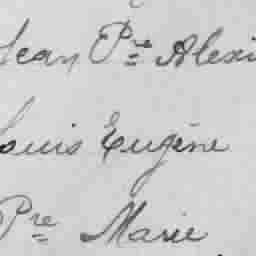 Jean Pre Alexi
Louis Eugène
Pre Marie